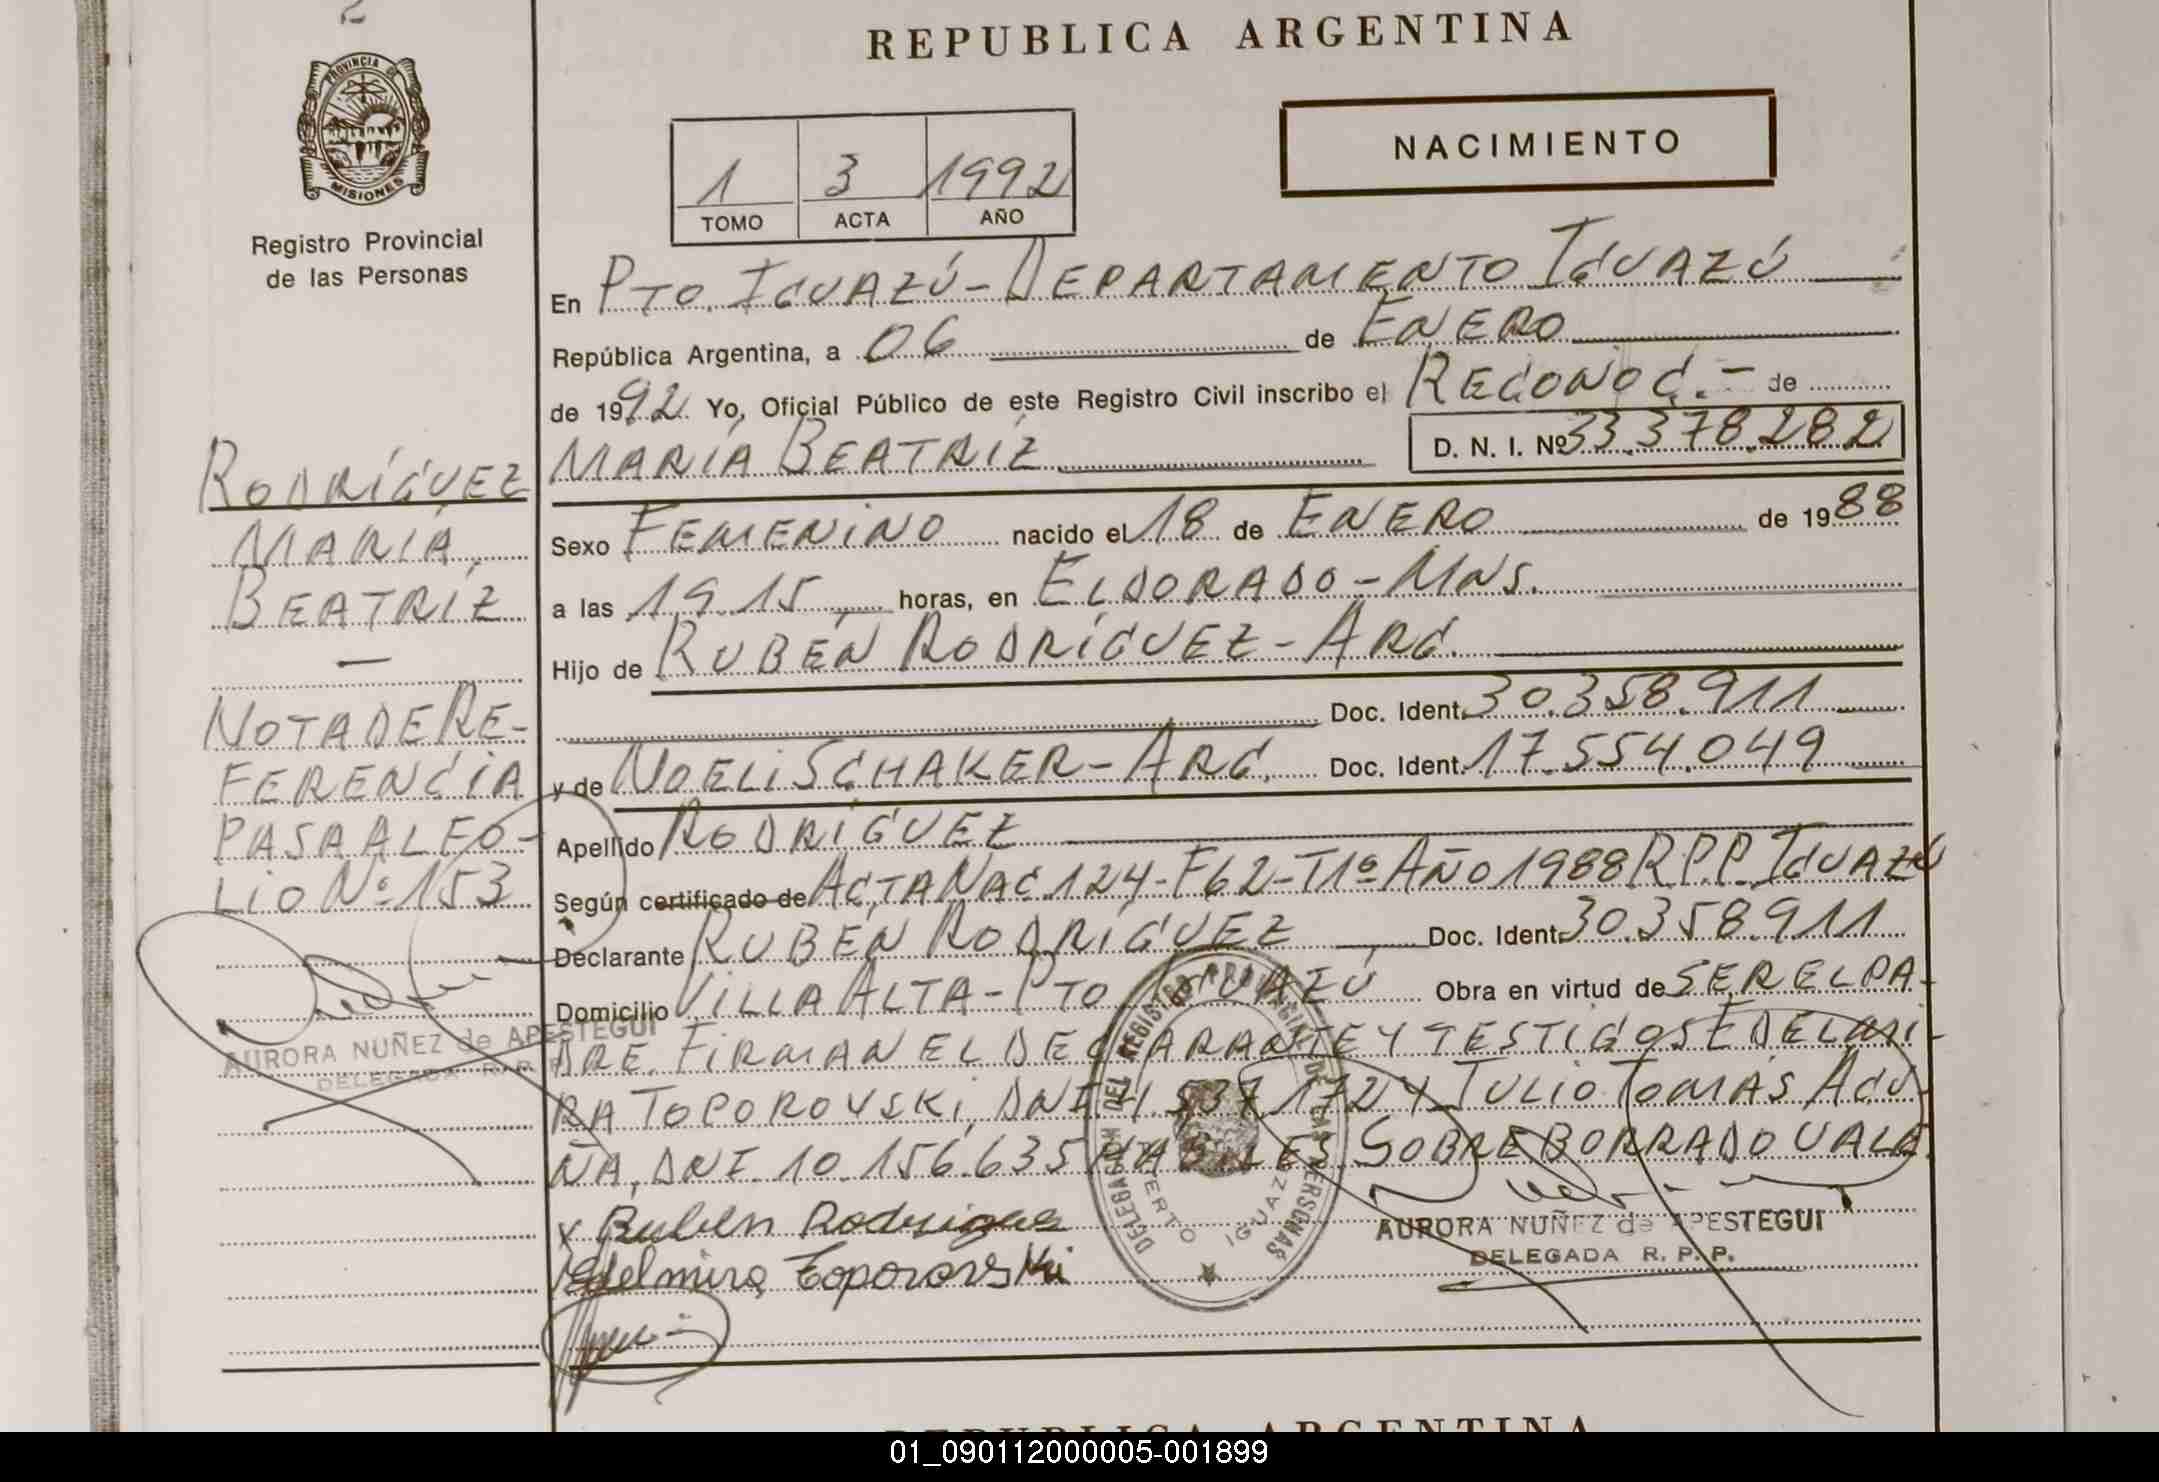 2
REPUBLICA ARGENTINA
PROVINCIA DE
MISIONES
Registro Provincial
de las Personas
NACIMIENTO
1 3 1992
TOMO ACTA AÑO
En PTO. IGUAZÚ - DEPARTAMENTO IGUAZÚ
República Argentina, a 06 de ENERO
de 1992 Yo, Oficial Público de este Registro Civil inscribo el RECONOC. - de
MARÍA BEATRÍZ D. N. I. Nº 33.378.282
RODRÍGUEZ
MARÍA
BEATRÍZ
—
NOTA DE RE-
FERENCIA
PASA AL FO-
LIO Nº 153
AURORA NUÑEZ de APESTEGUI
DELEGADA R. P. P.
Sexo FEMENINO nacido el 18 de ENERO de 1988
a las 19.15 horas, en ELDORADO - MNS.
Hijo de RUBÉN RODRÍGUEZ - ARG.
Doc. Ident. 30.358.911
y de NOELI SCHAKER - ARG. Doc. Ident. 17.554.049
Apellido RODRÍGUEZ
Según certificado de ACTA NAC. 124 - F62 - T1º AÑO 1988 R.P.P. IGUAZÚ
Declarante RUBÉN RODRÍGUEZ Doc. Ident. 30.358.911
Domicilio VILLA ALTA - PTO IGUAZÚ Obra en virtud de SER EL PA-
DRE. FIRMAN EL DECLARANTE Y TESTIGOS EDELMI-
RA TOPOROVSKI, DNI. 4.537.172 Y TULIO TOMÁS ACU-
ÑA, DNI. 10.156.635 HÁBILES. SOBREBORRADO VALE.
x Ruben Rodriguez
Edelmira Toporovski
DELEGACION DEL REGISTRO PROVINCIAL DE LAS PERSONAS
PUERTO IGUAZU
AURORA NUÑEZ de APESTEGUI
DELEGADA R. P. P.
REPUBLICA ARGENTINA
01_090112000005-001899